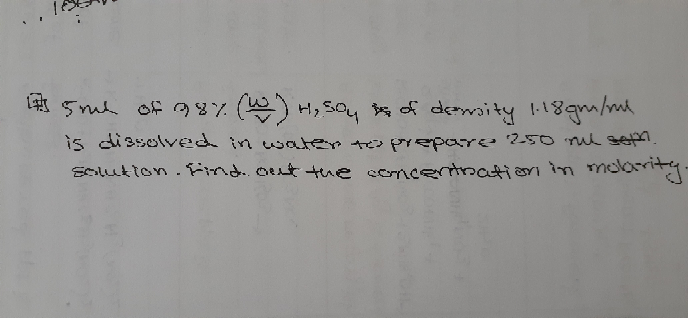 5 ml of 98% (W/V) H₂SO₄ of density 1.18gm/ml
is dissolved in water to prepare 250 ml
solution. Find out the concentration in molarity.